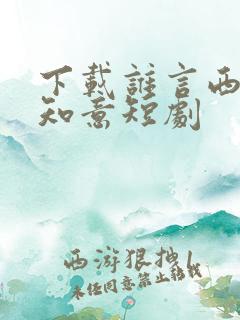 下載誰言西
知意短劇
西游狠抽1
未经同意禁止转载